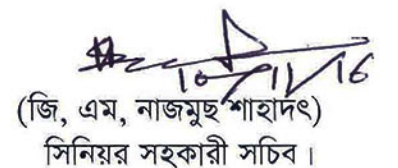 10/11/16
(জি, এম, নাজমুছ শাহাদৎ)
সিনিয়র সহকারী সচিব।